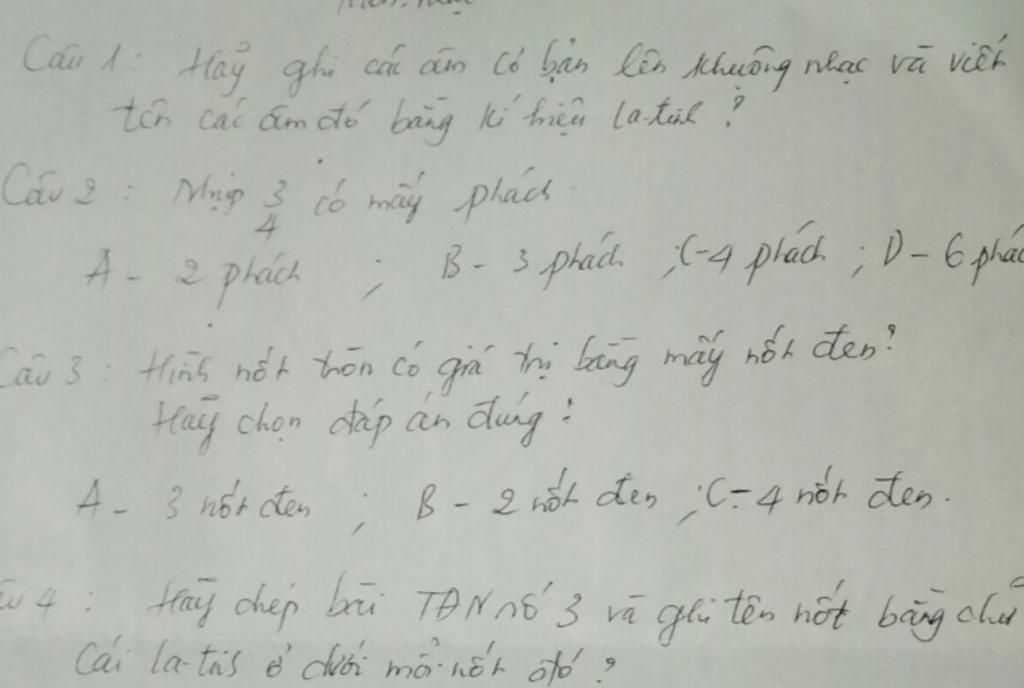 Câu 1: Hãy ghi các âm cơ bản lên khuông nhạc và viết
tên các âm đó bằng kí hiệu la-tinh?
Câu 2: Nhịp 3/4 có mấy phách
A - 2 phách ; B - 3 phách ; C - 4 phách ; D - 6 phác
Câu 3: Hình nốt tròn có giá trị bằng mấy nốt đen?
Hãy chọn đáp án đúng:
A - 3 nốt đen ; B - 2 nốt đen ; C - 4 nốt đen.
âu 4: Hãy chép bài TĐN số 3 và ghi tên nốt bằng chữ
Cái la-tinh ở dưới mỗi nốt đó?